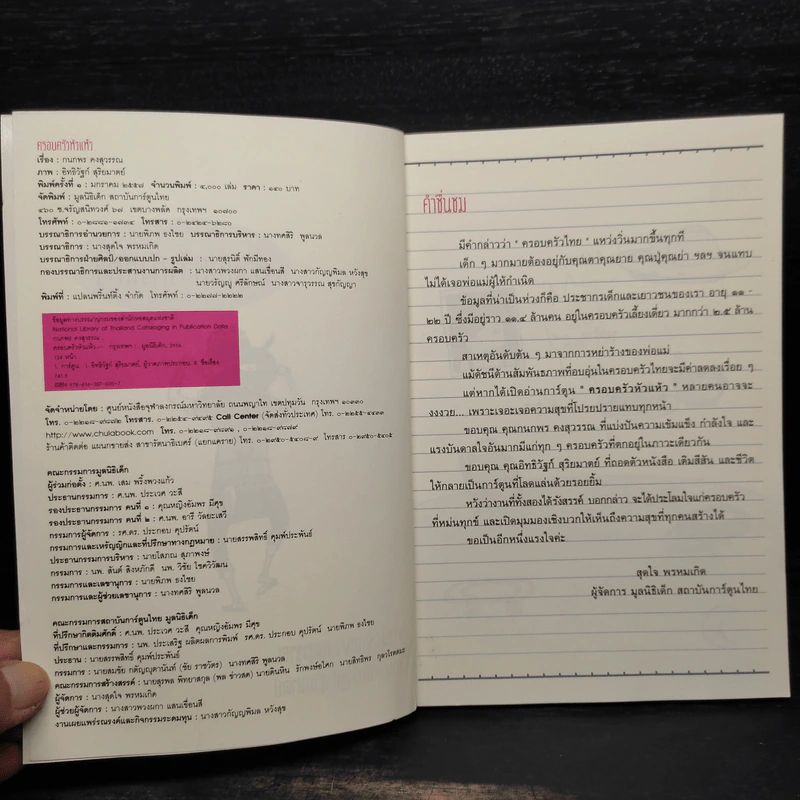 ครอบครัวหัวแห้ว
เรื่อง : กนกพร คงสุวรรณ
ภาพ : อิทธิวัฐก์ สุริยมาตย์
พิมพ์ครั้งที่ ๑ : มกราคม ๒๕๕๗ จำนวนพิมพ์ : ๔,๐๐๐ เล่ม ราคา : ๑๔๐ บาท
จัดพิมพ์ : มูลนิธิเด็ก สถาบันการ์ตูนไทย
๔๖๐ ซ.จรัญสนิทวงศ์ ๖๗ เขตบางพลัด กรุงเทพฯ ๑๐๗๐๐
โทรศัพท์ : ๐-๒๘๘๑-๑๗๓๔ โทรสาร : ๐-๒๔๒๔-๖๒๘๐
บรรณาธิการอำนวยการ : นายพิภพ ธงไชย บรรณาธิการบริหาร : นางทศสิริ พูลนวล
บรรณาธิการ : นางสุดใจ พรหมเกิด
บรรณาธิการฝ่ายศิลป์/ออกแบบปก - รูปเล่ม : นายสุรนิตี พักมีทอง
กองบรรณาธิการและประสานงานการผลิต : นางสาวพวงผกา แสนเขื่อนสี นางสาวกัญญพิมล หวังสุข
นายวรัญญู ศรีลักษณ์ นางสาวจารุวรรณ สุขกัญญา
พิมพ์ที่ : แปลนพริ้นท์ติ้ง จำกัด โทรศัพท์ : ๐-๒๒๗๗-๒๒๒๒
ข้อมูลทางบรรณานุกรมของสำนักหอสมุดแห่งชาติ
National Library of Thailand Cataloging in Publication Data
กนกพร คงสุวรรณ
ครอบครัวหัวแห้ว.-- กรุงเทพฯ : มูลนิธิเด็ก,
หน้า
1. การ์ตูน. I. อิทธิวัฐก์ สุริยมาตย์, ผู้วาดภาพประกอบ. II. ชื่อเรื่อง
จัดจำหน่ายโดย : ศูนย์หนังสือจุฬาลงกรณ์มหาวิทยาลัย ถนนพญาไท เขตปทุมวัน กรุงเทพฯ ๑๐๓๓๐
โทร. ๐-๒๒๑๘-๙๘๗๒ โทรสาร. ๐-๒๒๕๔-๙๔๙๕ Call Center (จัดส่งทั่วประเทศ) โทร. ๐-๒๒๕๕-๔๔๓๓
http://www.chulabook.com โทร. ๐-๒๒๑๘-๙๘๘๑ , ๐-๒๒๑๘-๗๘๗๙
ร้านค้าติดต่อ แผนกขายส่ง สาขารัตนาธิเบศร์ (แยกแคราย) โทร. ๐-๒๙๕๐-๕๔๐๘-๙ โทรสาร ๐-๒๙๕๐-๕๔๐๕
คณะกรรมการมูลนิธิเด็ก
ผู้ร่วมก่อตั้ง : ศ.นพ. เสม พริ้งพวงแก้ว
ประธานกรรมการ : ศ.นพ. ประเวศ วะสี
รองประธานกรรมการ คนที่ ๑ : คุณหญิงอัมพร มีศุข
รองประธานกรรมการ คนที่ ๒ : ศ.นพ. อารี วัลยะเสวี
กรรมการผู้จัดการ : รศ.ดร. ประกอบ คุปรัตน์
กรรมการและเหรัญญิกและที่ปรึกษาทางกฎหมาย : นายสรรพสิทธิ์ คุมพ์ประพันธ์
ประธานกรรมการบริหาร : นายโสภณ สุภาพงษ์
กรรมการ : นพ. สันต์ สิงหภักดี นพ. วิชัย โชควิวัฒน
กรรมการและเลขานุการ : นายพิภพ ธงไชย
กรรมการและผู้ช่วยเลขานุการ : นางทศสิริ พูลนวล
คณะกรรมการสถาบันการ์ตูนไทย มูลนิธิเด็ก
ที่ปรึกษากิตติมศักดิ์ : ศ.นพ. ประเวศ วะสี คุณหญิงอัมพร มีศุข
ที่ปรึกษาและกรรมการ : นพ. ประเสริฐ ผลิตผลการพิมพ์ รศ.ดร. ประกอบ คุปรัตน์ นายพิภพ ธงไชย
ประธาน : นายสรรพสิทธิ์ คุมพ์ประพันธ์
กรรมการ : นายสมชัย กตัญญุตานันท์ (ชัย ราชวัตร) นางทศสิริ พูลนวล
คณะกรรมการสร้างสรรค์ : นายสุรพล พิทยาสกุล (พล ข่าวสด) นายดินหิน รักพงษ์อโศก นายสิทธิพร
ผู้จัดการ : นางสุดใจ พรหมเกิด
ผู้ช่วยผู้จัดการ : นางสาวพวงผกา แสนเขื่อนสี
งานเผยแพร่รณรงค์และกิจกรรมระดมทุน : นางสาวกัญญพิมล หวังสุข
คำชื่นชม
มีคำกล่าวว่า "ครอบครัวไทย" แหว่งวิ่นมากขึ้นทุกที
เด็ก ๆ มากมายต้องอยู่กับคุณตาคุณยาย คุณปู่คุณย่า ฯลฯ จนแทบ
ไม่ได้เจอพ่อแม่ผู้ให้กำเนิด
ข้อมูลที่น่าเป็นห่วงก็คือ ประชากรเด็กและเยาวชนของเรา อายุ ๑๑ -
๒๒ ปี ซึ่งมีอยู่ราว ๑๑.๔ ล้านคน อยู่ในครอบครัวเลี้ยงเดี่ยว มากกว่า ๒.๕ ล้าน
ครอบครัว
สาเหตุอันดับต้น ๆ มาจากการหย่าร้างของพ่อแม่
แม้ดัชนีด้านสัมพันธภาพที่อบอุ่นในครอบครัวไทยจะมีค่าลดลงเรื่อย ๆ
แต่หากได้เปิดอ่านการ์ตูน "ครอบครัวหัวแห้ว" หลายคนอาจจะ
งงงวย... เพราะเจอะเจอความสุขที่โปรยปรายแทบทุกหน้า
ขอบคุณ คุณกนกพร คงสุวรรณ ที่แบ่งปันความเข้มแข็ง กำลังใจ และ
แรงบันดาลใจอันมากมีแก่ทุก ๆ ครอบครัวที่ตกอยู่ในภาวะเดียวกัน
ขอบคุณ คุณอิทธิวัฐก์ สุริยมาตย์ ที่ถอดตัวหนังสือ เติมสีสัน และชีวิต
ให้กลายเป็นการ์ตูนที่โลดแล่นด้วยรอยยิ้ม
หวังว่างานที่ทั้งสองได้รังสรรค์ บอกกล่าว จะได้ประโลมใจแก่ครอบครัว
ที่หม่นทุกข์ และเปิดมุมมองเชิงบวกให้เห็นถึงความสุขที่ทุกคนสร้างได้
ขอเป็นอีกหนึ่งแรงใจค่ะ
สุดใจ พรหมเกิด
ผู้จัดการ มูลนิธิเด็ก สถาบันการ์ตูนไทย